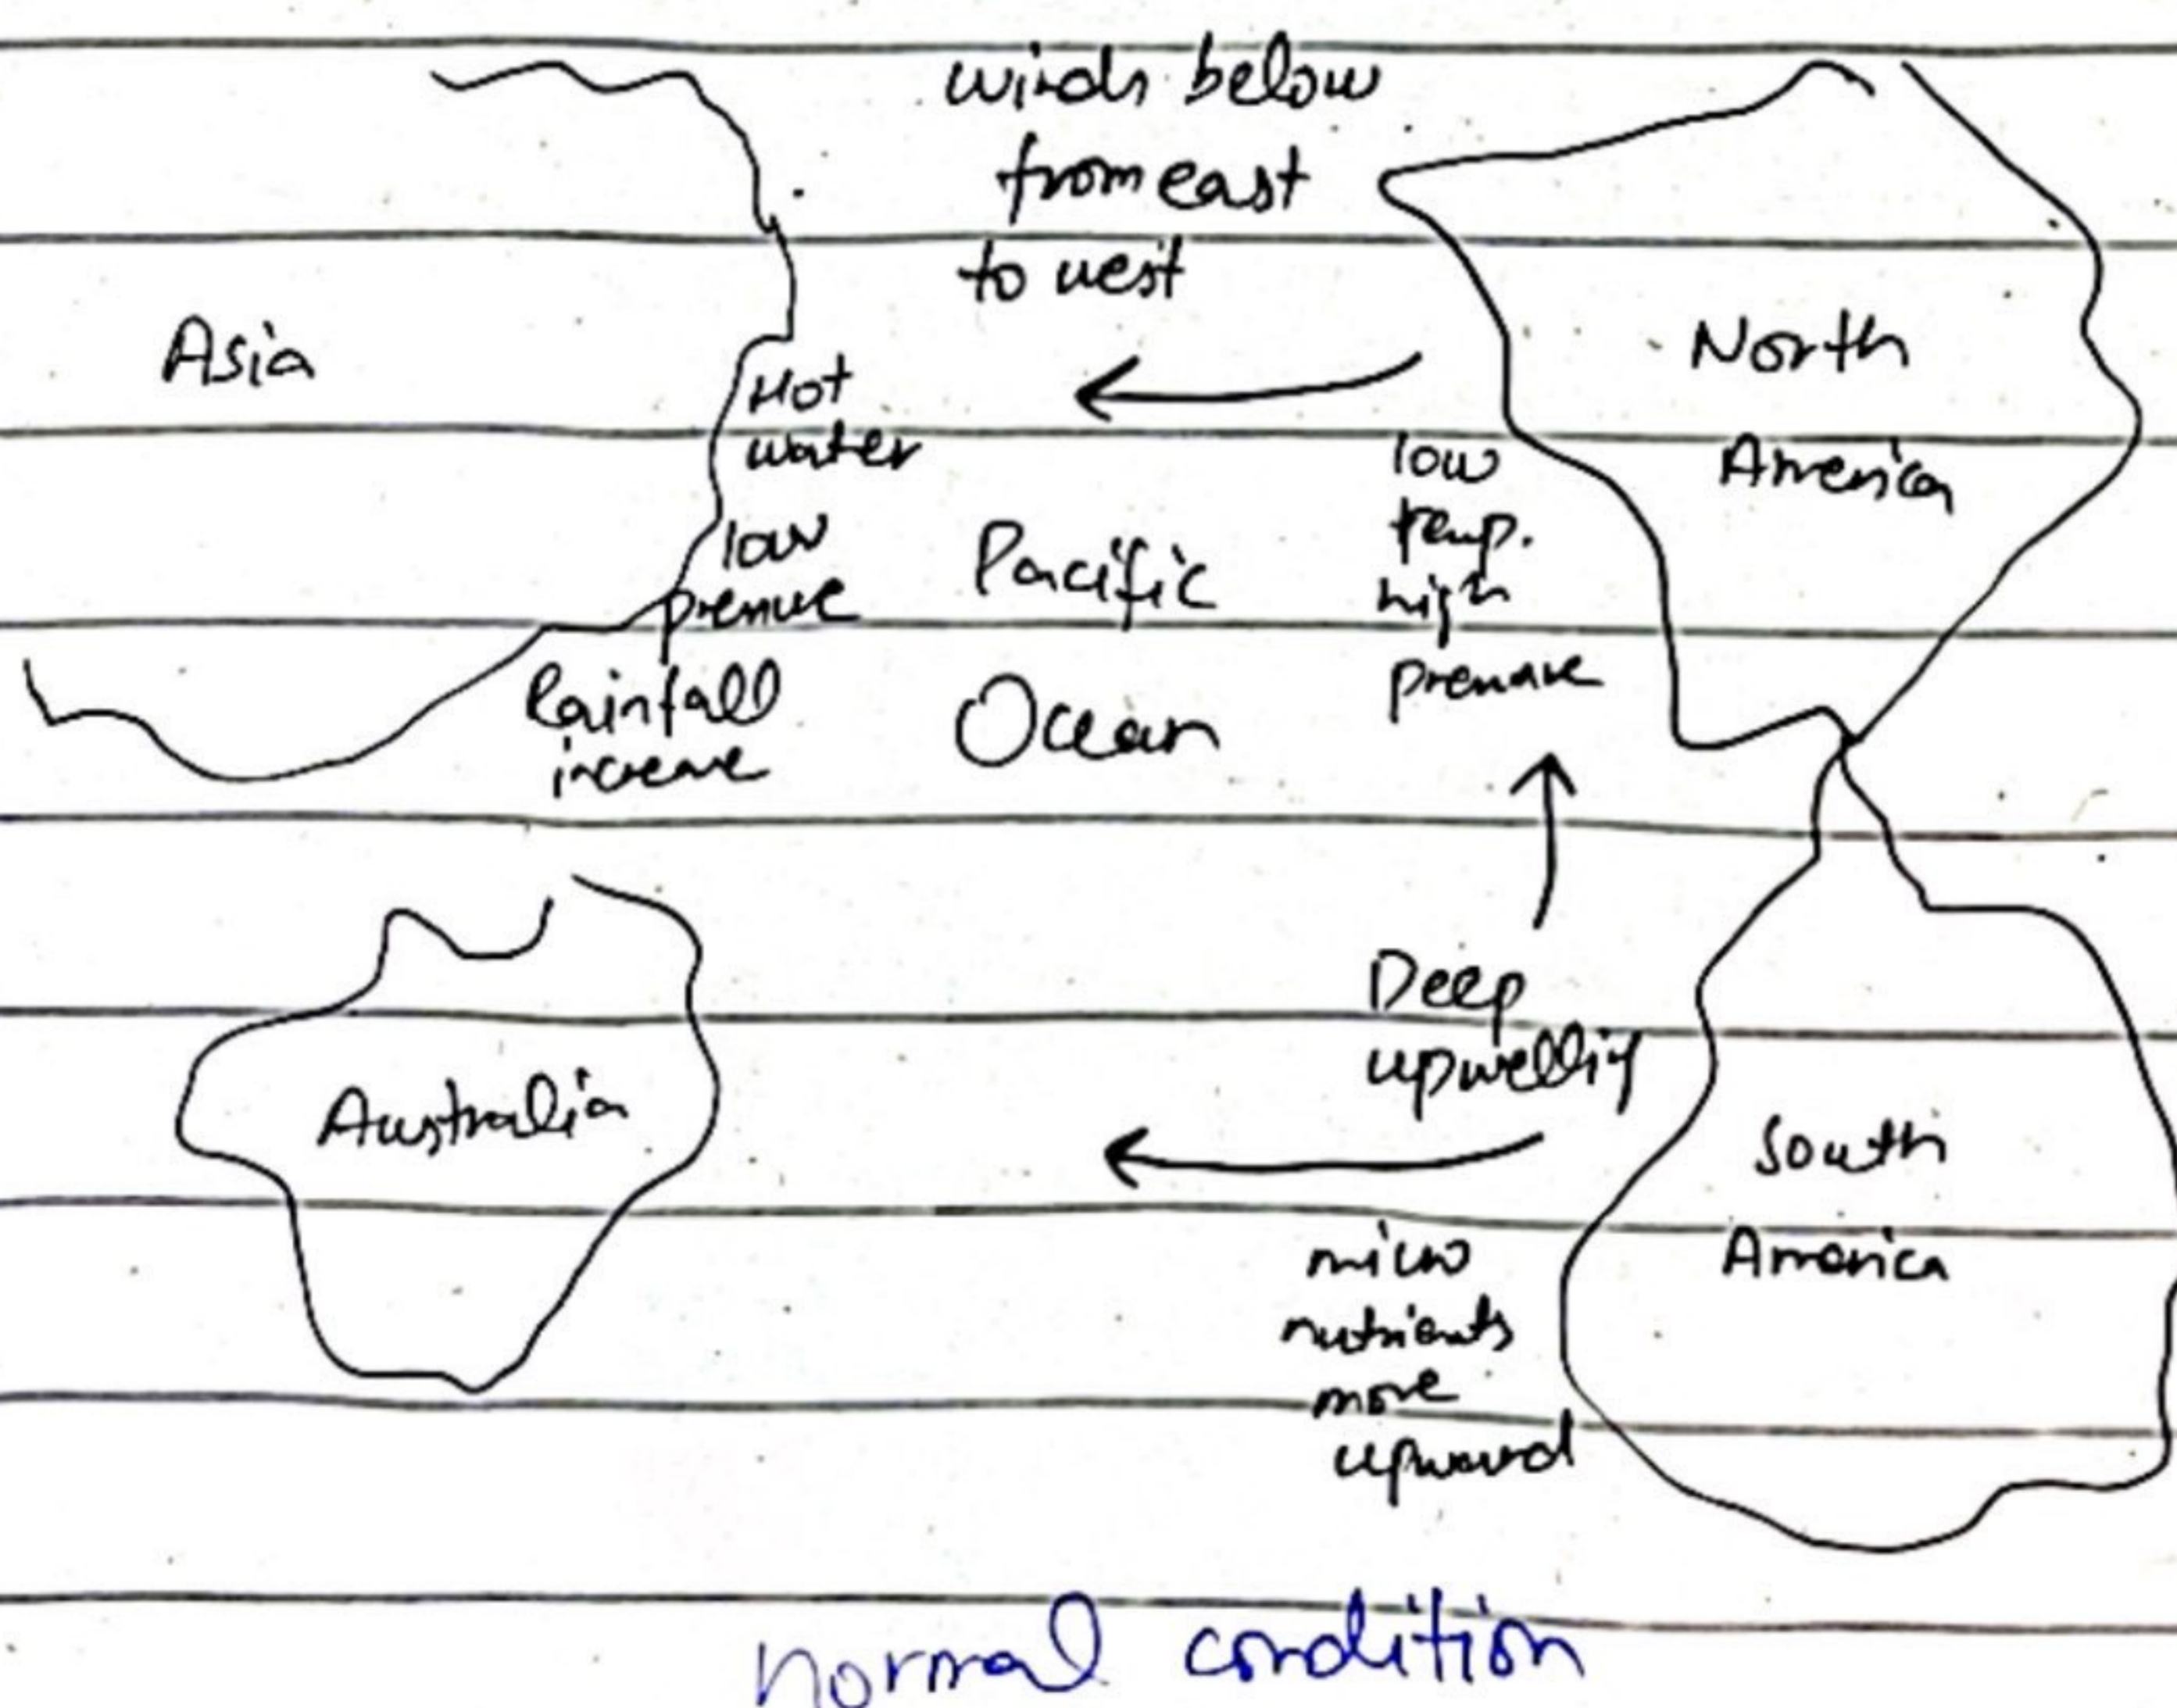 winds below
from east
to west
Asia
Hot
water
low
pressure
Rainfall
increase
Pacific
Ocean
low
temp.
high
pressure
North
America
Deep
upwelling
Australia
South
America
micro
nutrients
move
upward
normal condition